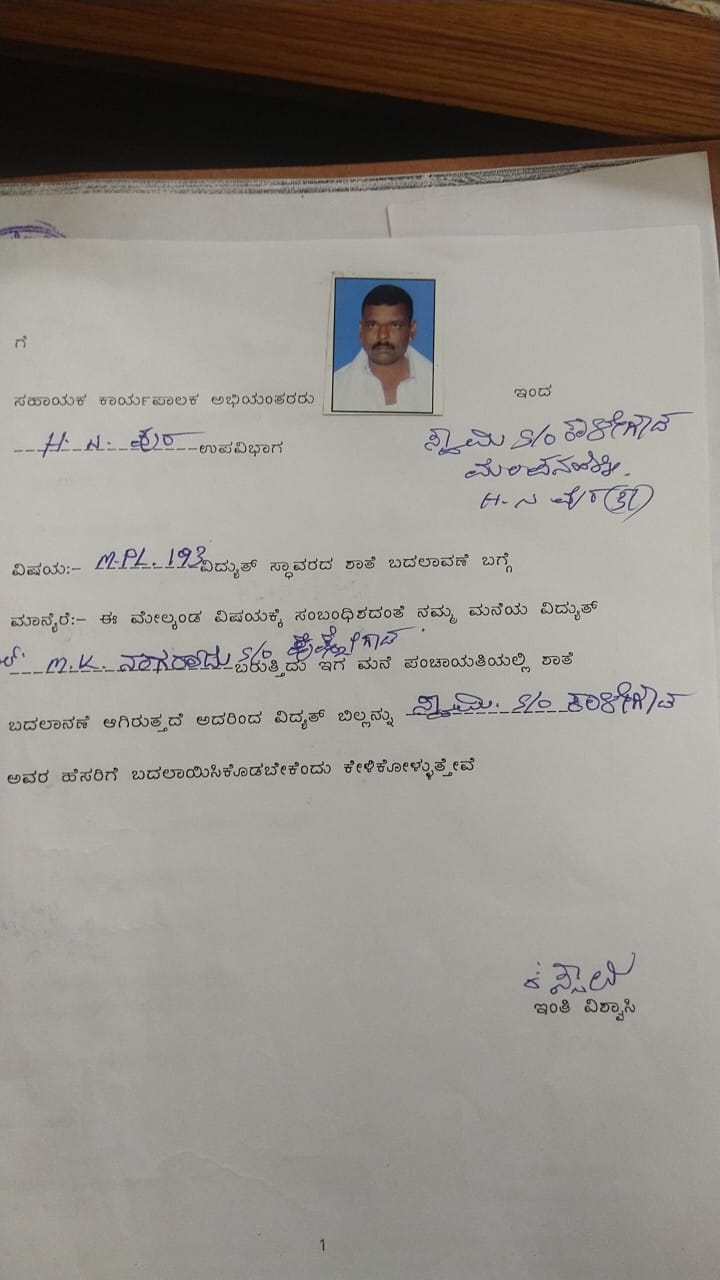 ಗೆ
ಸಹಾಯಕ ಕಾರ್ಯಪಾಲಕ ಅಭಿಯಂತರರು
H. N. ಪುರ ಉಪವಿಭಾಗ
ಇಂದ
ಸ್ವಾಮಿ S/o ಕಾಳೇಗೌಡ
H. ನ ಪುರ (ತಾ)
ವಿಷಯ:- M.PL. 193 ವಿದ್ಯುತ್ ಸ್ಥಾವರದ ಶಾತೆ ಬದಲಾವಣೆ ಬಗ್ಗೆ
ಮಾನ್ಯೆರೆ:- ಈ ಮೇಲ್ಕಂಡ ವಿಷಯಕ್ಕೆ ಸಂಬಂಧಿಶದಂತೆ ನಮ್ಮ ಮನೆಯ ವಿದ್ಯುತ್
M.K. ನಾಗರಾಜು S/o ಬರುತ್ತಿದು ಇಗ ಮನೆ ಪಂಚಾಯತಿಯಲ್ಲಿ ಶಾತೆ
ಬದಲಾನಣೆ ಆಗಿರುತ್ತದೆ ಅದರಿಂದ ವಿದ್ಯತ್ ಬಿಲ್ಲನ್ನು ಸ್ವಾಮಿ. S/o ಕಾಳೇಗೌಡ
ಅವರ ಹೆಸರಿಗೆ ಬದಲಾಯಿಸಿಕೊಡಬೇಕೆಂದು ಕೇಳಿಕೋಳ್ಳುತ್ತೇವೆ
ಇಂತಿ ವಿಶ್ವಾಸಿ
1